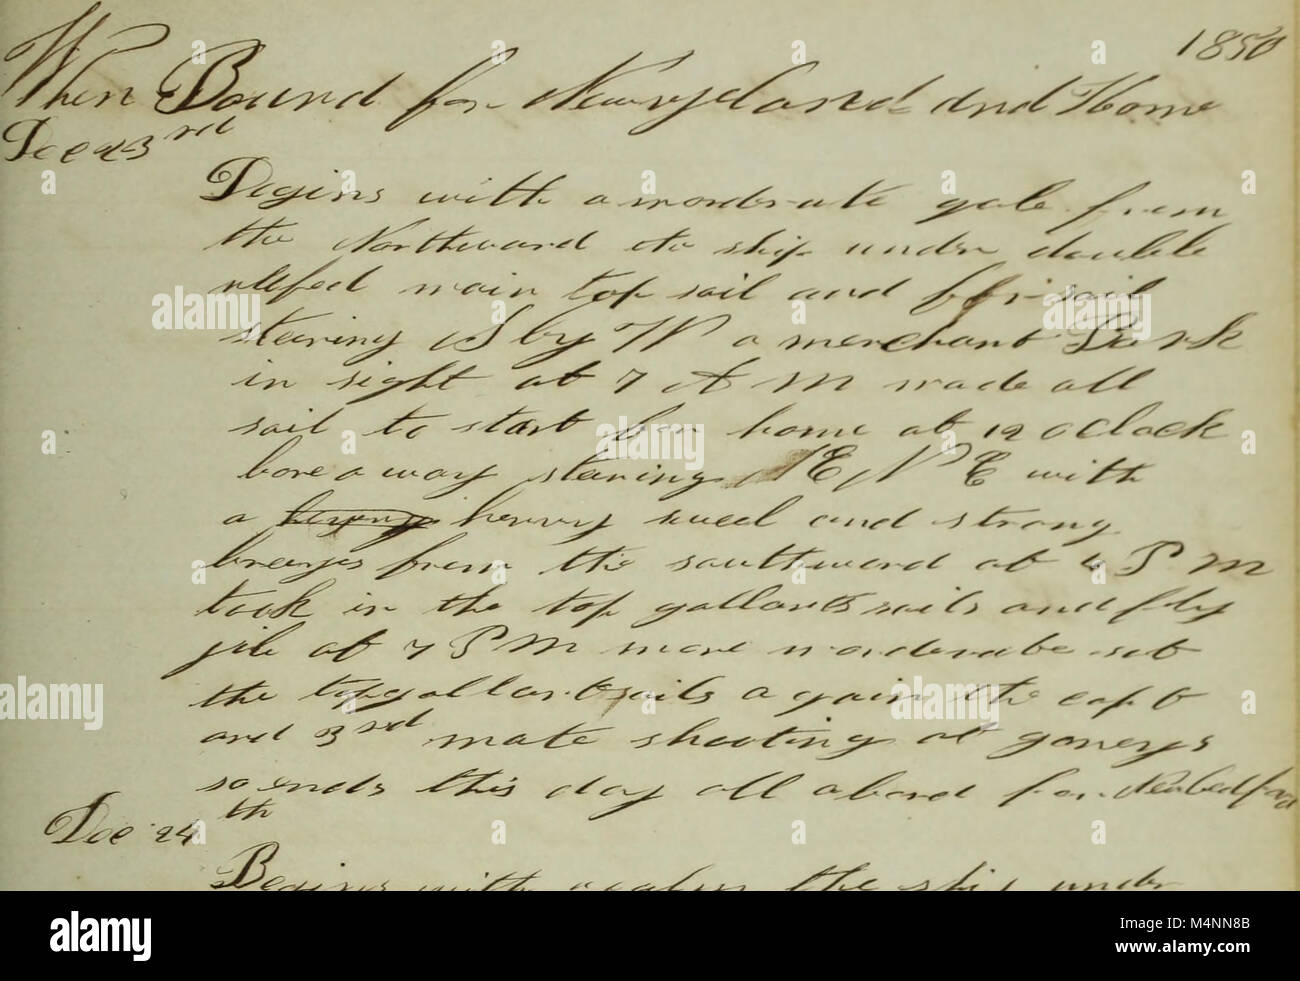 1850
When Bound for Newyeland and Home
Dec 23rd
Begins with a morderate gale from
the Northward the ship under double
reefed main top sail and for sail
stearing S by W a merchant Bark
in sight at 7 A M made all
sail to start for home at 12 oclock
bore away stearing N E N E with
a heavy swell and strong
breezes from the southward at 4 P M
took in the top gallant sails and fly
jib at 7 P M more morderate set
the top gallant sails again the capt
and 3rd mate shooting at goneys
so ends this day all abord for Newbedford
Dec 24th
Begins with a calm the ship under
alamy
Image ID: M4NN8B
www.alamy.com